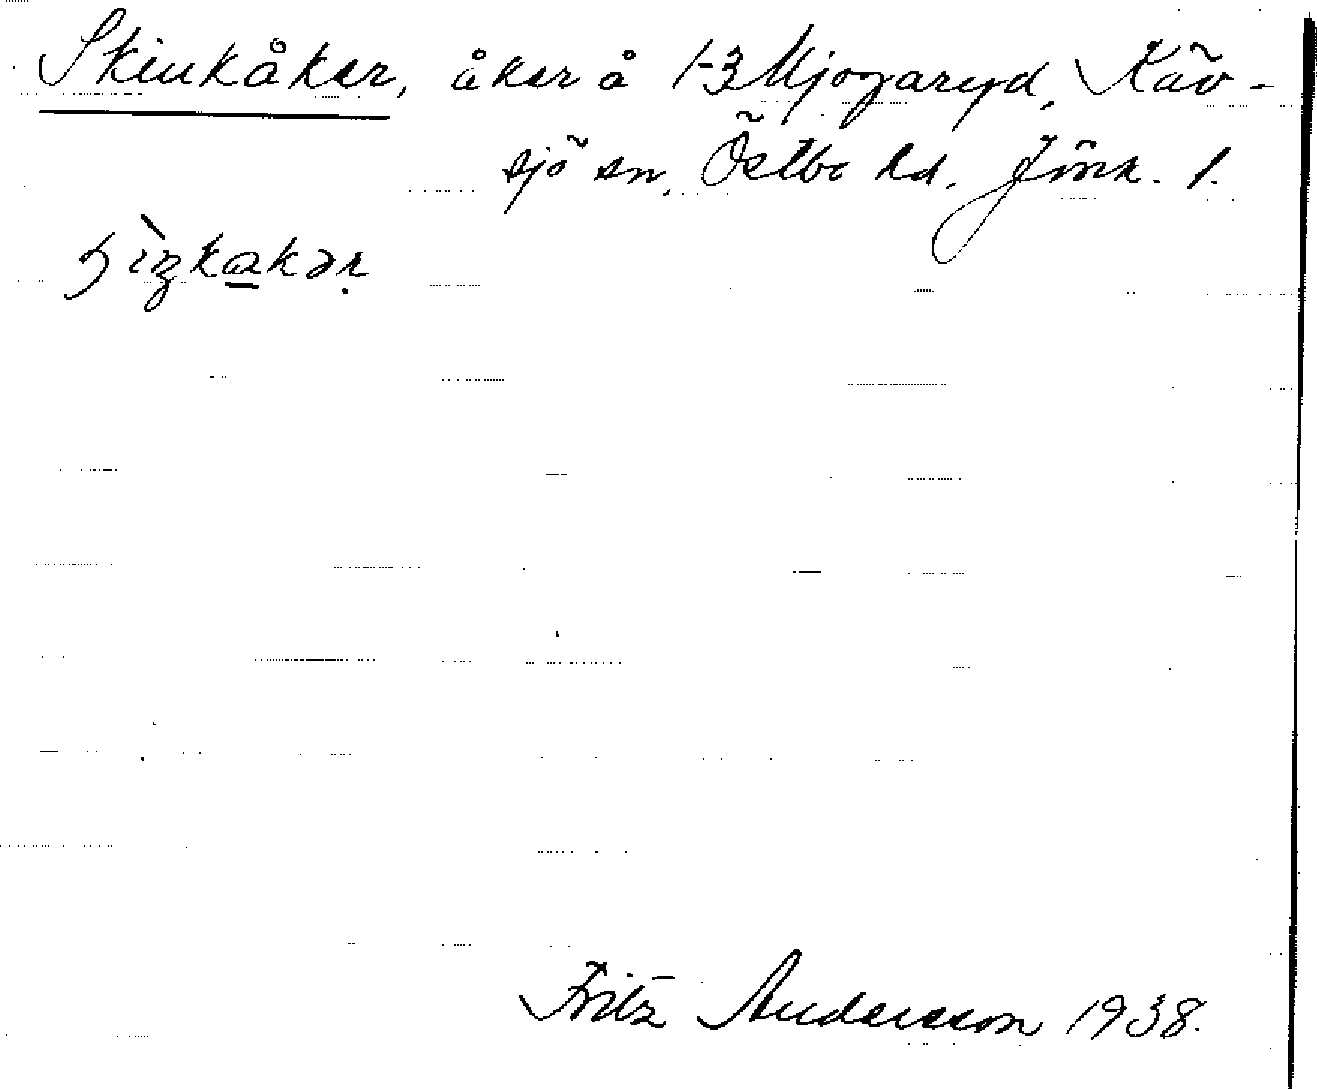 Skinkåker, åker å 1-3 Mjogaryd, Käv-
sjö sn, Östbo hd. Jönk. l.
Fritz Andersson 1938.